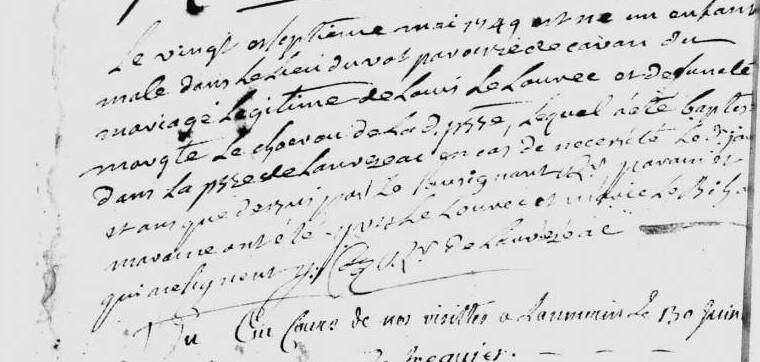 Le vingt et septieme mai 1749 est né un enfant
male dans le lieu du vot paroisse de cavan du
mariage legitime de Louis Le Louvec et de
margte Le de La d. psse, lequel a été baptisé
dans la psse de Lauvezeac en cas de necessité Le d. jour
et an que dessus par Le sousignant Rr, parain et
maraine ont été yves Le Louvec et marie Le Biha
qui ne signent Rr de Lauvézéac
Vu en Cours de nos visittes a Lanmerin Le 13e Juin
treguier.